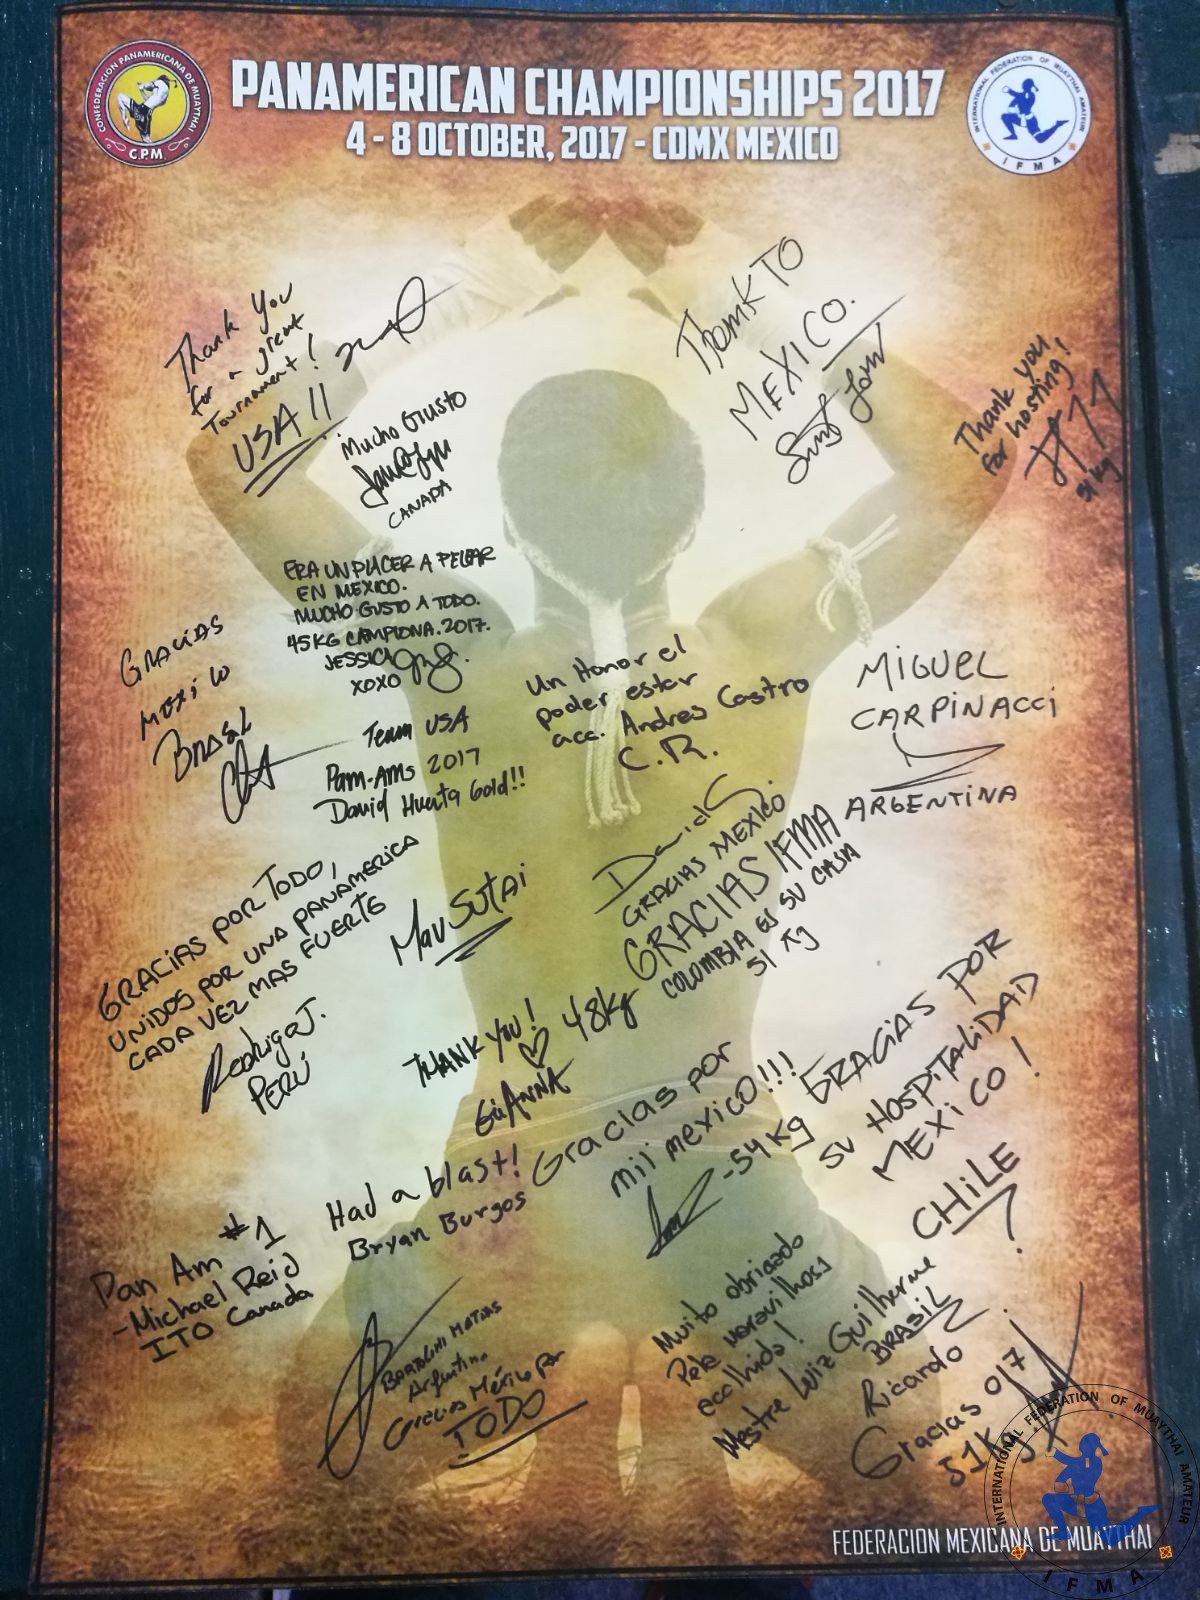 CONFEDERACION PANAMERICANA DE MUAYTHAI
C.P.M.
PANAMERICAN CHAMPIONSHIPS 2017
4 - 8 OCTOBER, 2017 - CDMX MEXICO
INTERNATIONAL FEDERATION OF MUAYTHAI AMATEUR
IFMA
Thank You
for a great
Tournament!
USA !!
Mucho Giusto
CANADA
THANK TO
MEXICO.
Thank you
for hosting!
51kg
ERA UN PLACER A PELEAR
EN MEXICO.
MUCHO GUSTO A TODO.
45KG CAMPIONA. 2017.
JESSICA
XOXO
GRACIAS
MEXICO
BRASIL
Team USA
Pam-Ams 2017
David Huerta Gold!!
Un Honor el
poder estar
acc. Andres Castro
C.R.
MIGUEL
CARPINACCI
ARGENTINA
David S.
GRACIAS MEXICO
GRACIAS IFMA
COLOMBIA ES SU CASA
51 Kg
GRACIAS POR TODO,
UNIDOS POR UNA PANAMERICA
CADA VEZ MAS FUERTE
Rodrigo J.
PERÚ
Mau Sutai
THANK YOU!
♡ 48kg
GiANNA
Gracias por
mil mexico!!!
-54 Kg
GRACIAS POR
SU HOSPITALIDAD
MEXICO!
CHILE
Had a blast!
Bryan Burgos
Pan Am #1
-Michael Reid
ITO Canada
BARTOLINI MATIAS
Argentina
Gracias México por
TODO
Muito obrigado
Pela maravilhosa
acolhida!
Mestre Luiz Guilherme
BRASIL
Ricardo
Gracias
51Kg
FEDERACION MEXICANA DE MUAYTHAI
INTERNATIONAL FEDERATION OF MUAYTHAI AMATEUR
IFMA